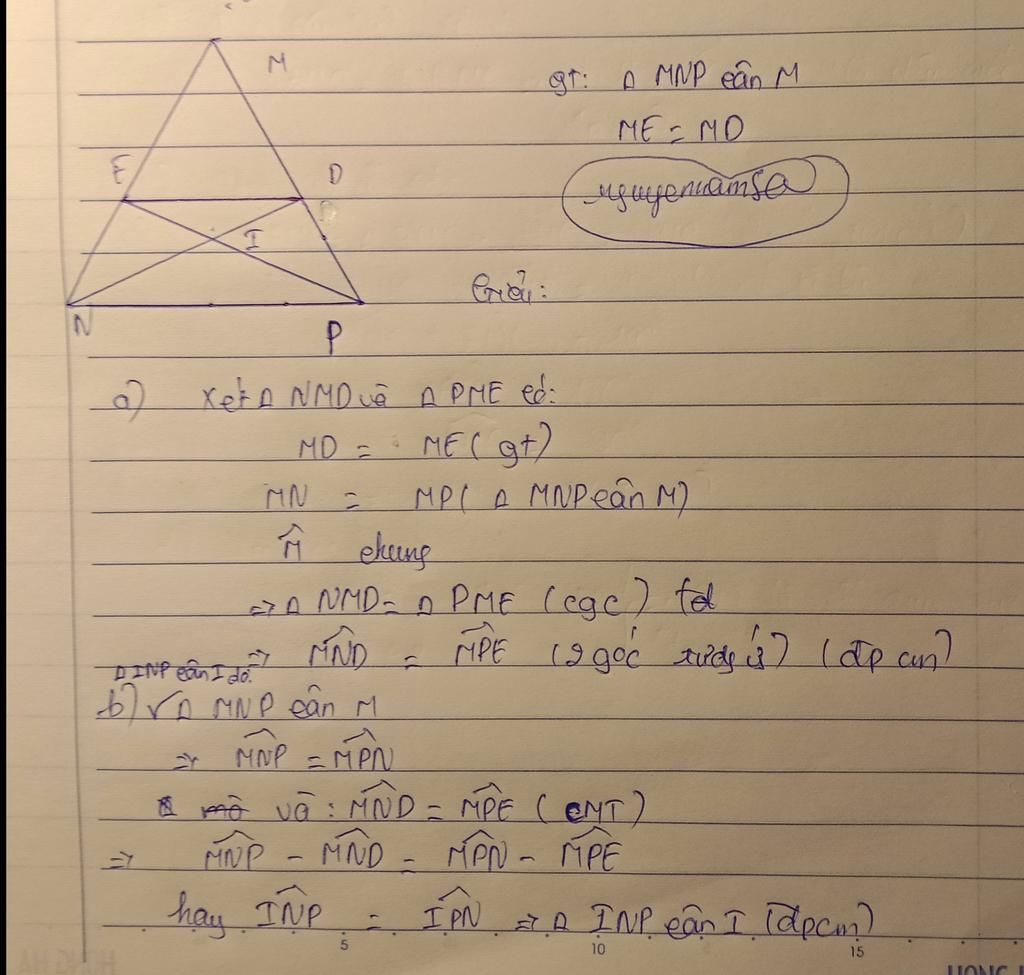 M
gt: Δ MNP cân M
ME = MD
E
D
nguyenvamsa
I
Giải:
N
P
a) Xét Δ NMD và Δ PME có:
MD = ME ( gt)
MN = MP ( Δ MNP cân M)
M̂ chung
⇒ Δ NMD = Δ PME (cgc)
⇒ M̂ND = M̂PE (2 góc tương ứ) (đp cm)
Δ INP cân I do:
b) √ Δ MNP cân M
⇒ M̂NP = M̂PN
và : M̂ND = M̂PE ( CMT)
⇒ M̂NP - M̂ND = M̂PN - M̂PE
hay ÎNP = ÎPN ⇒ Δ INP cân I (đpcm)
5
10
15